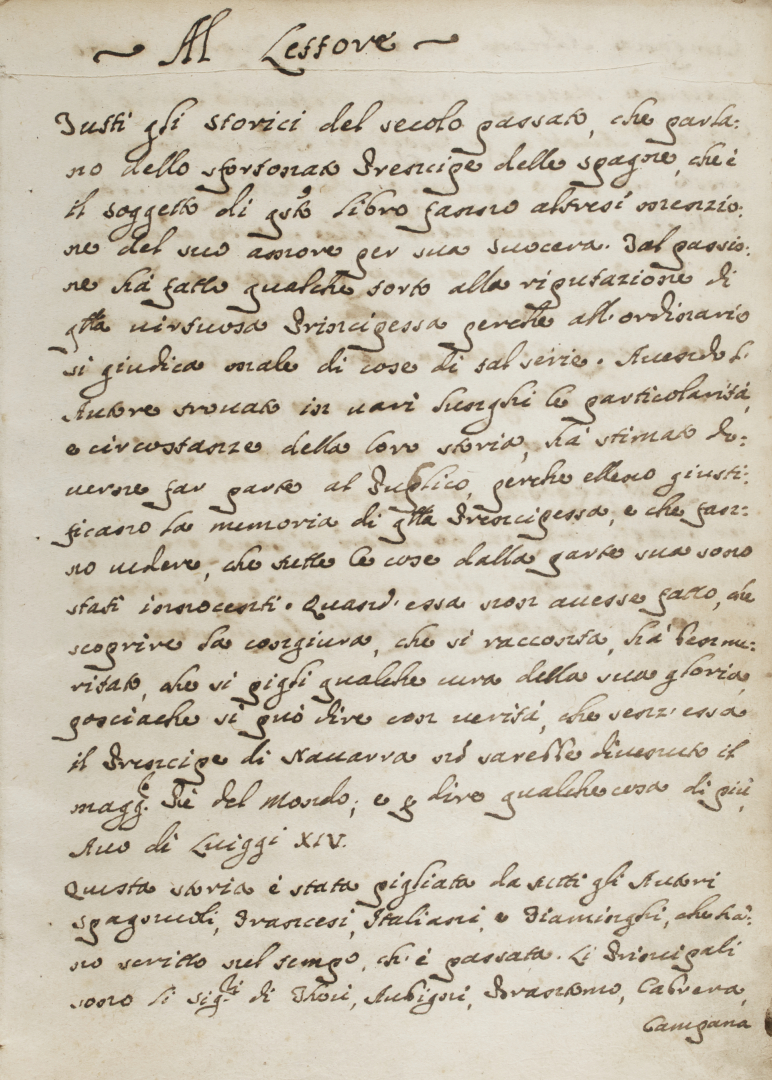 ~ Al Lettore ~
Tutti gli storici del secolo passato, che parla:
no dello sfortonato Prencipe delle spagne, che è
il soggetto di qsto libro fanno altresì menzio:
ne del suo amore per sua suocera. Tal passio:
ne hà fatto qualche torto alla riputazione di
qlla virtuosa Principessa perche all'ordinario
si giudica male di cose di tal serie. Avendo l'
Autore trovato in vari lunghi le particolarità,
e circostanze della loro storia, hà stimato do:
verne far parte al Publico, perche elleno giusti:
ficano la memoria di qlla Prencipessa, e che fan:
no vedere, che tutte le cose dalla parte sua sono
stati innocenti. Quand'essa non avesse fatto, che
scoprire la congiura, che si racconta, hà benme:
ritato, che si pigli qualche cura della sua gloria,
posciache si può dire con verità, che senz'essa
il Prencipe di Navarra nò sarebbe divenuto il
magg.e Rè del Mondo; e p dire qualche cosa di più,
Avo di Luiggi XIV.
Questa storia è stata pigliata da tutti gli Autori
spagnuoli, Francesi, Italiani, e Fiaminghi, che hà:
no scritto nel tempo, ch'è passata. Li Principali
sono li sig.ri di Thou, Aubigni, Brantomo, Cabrera,
Campana